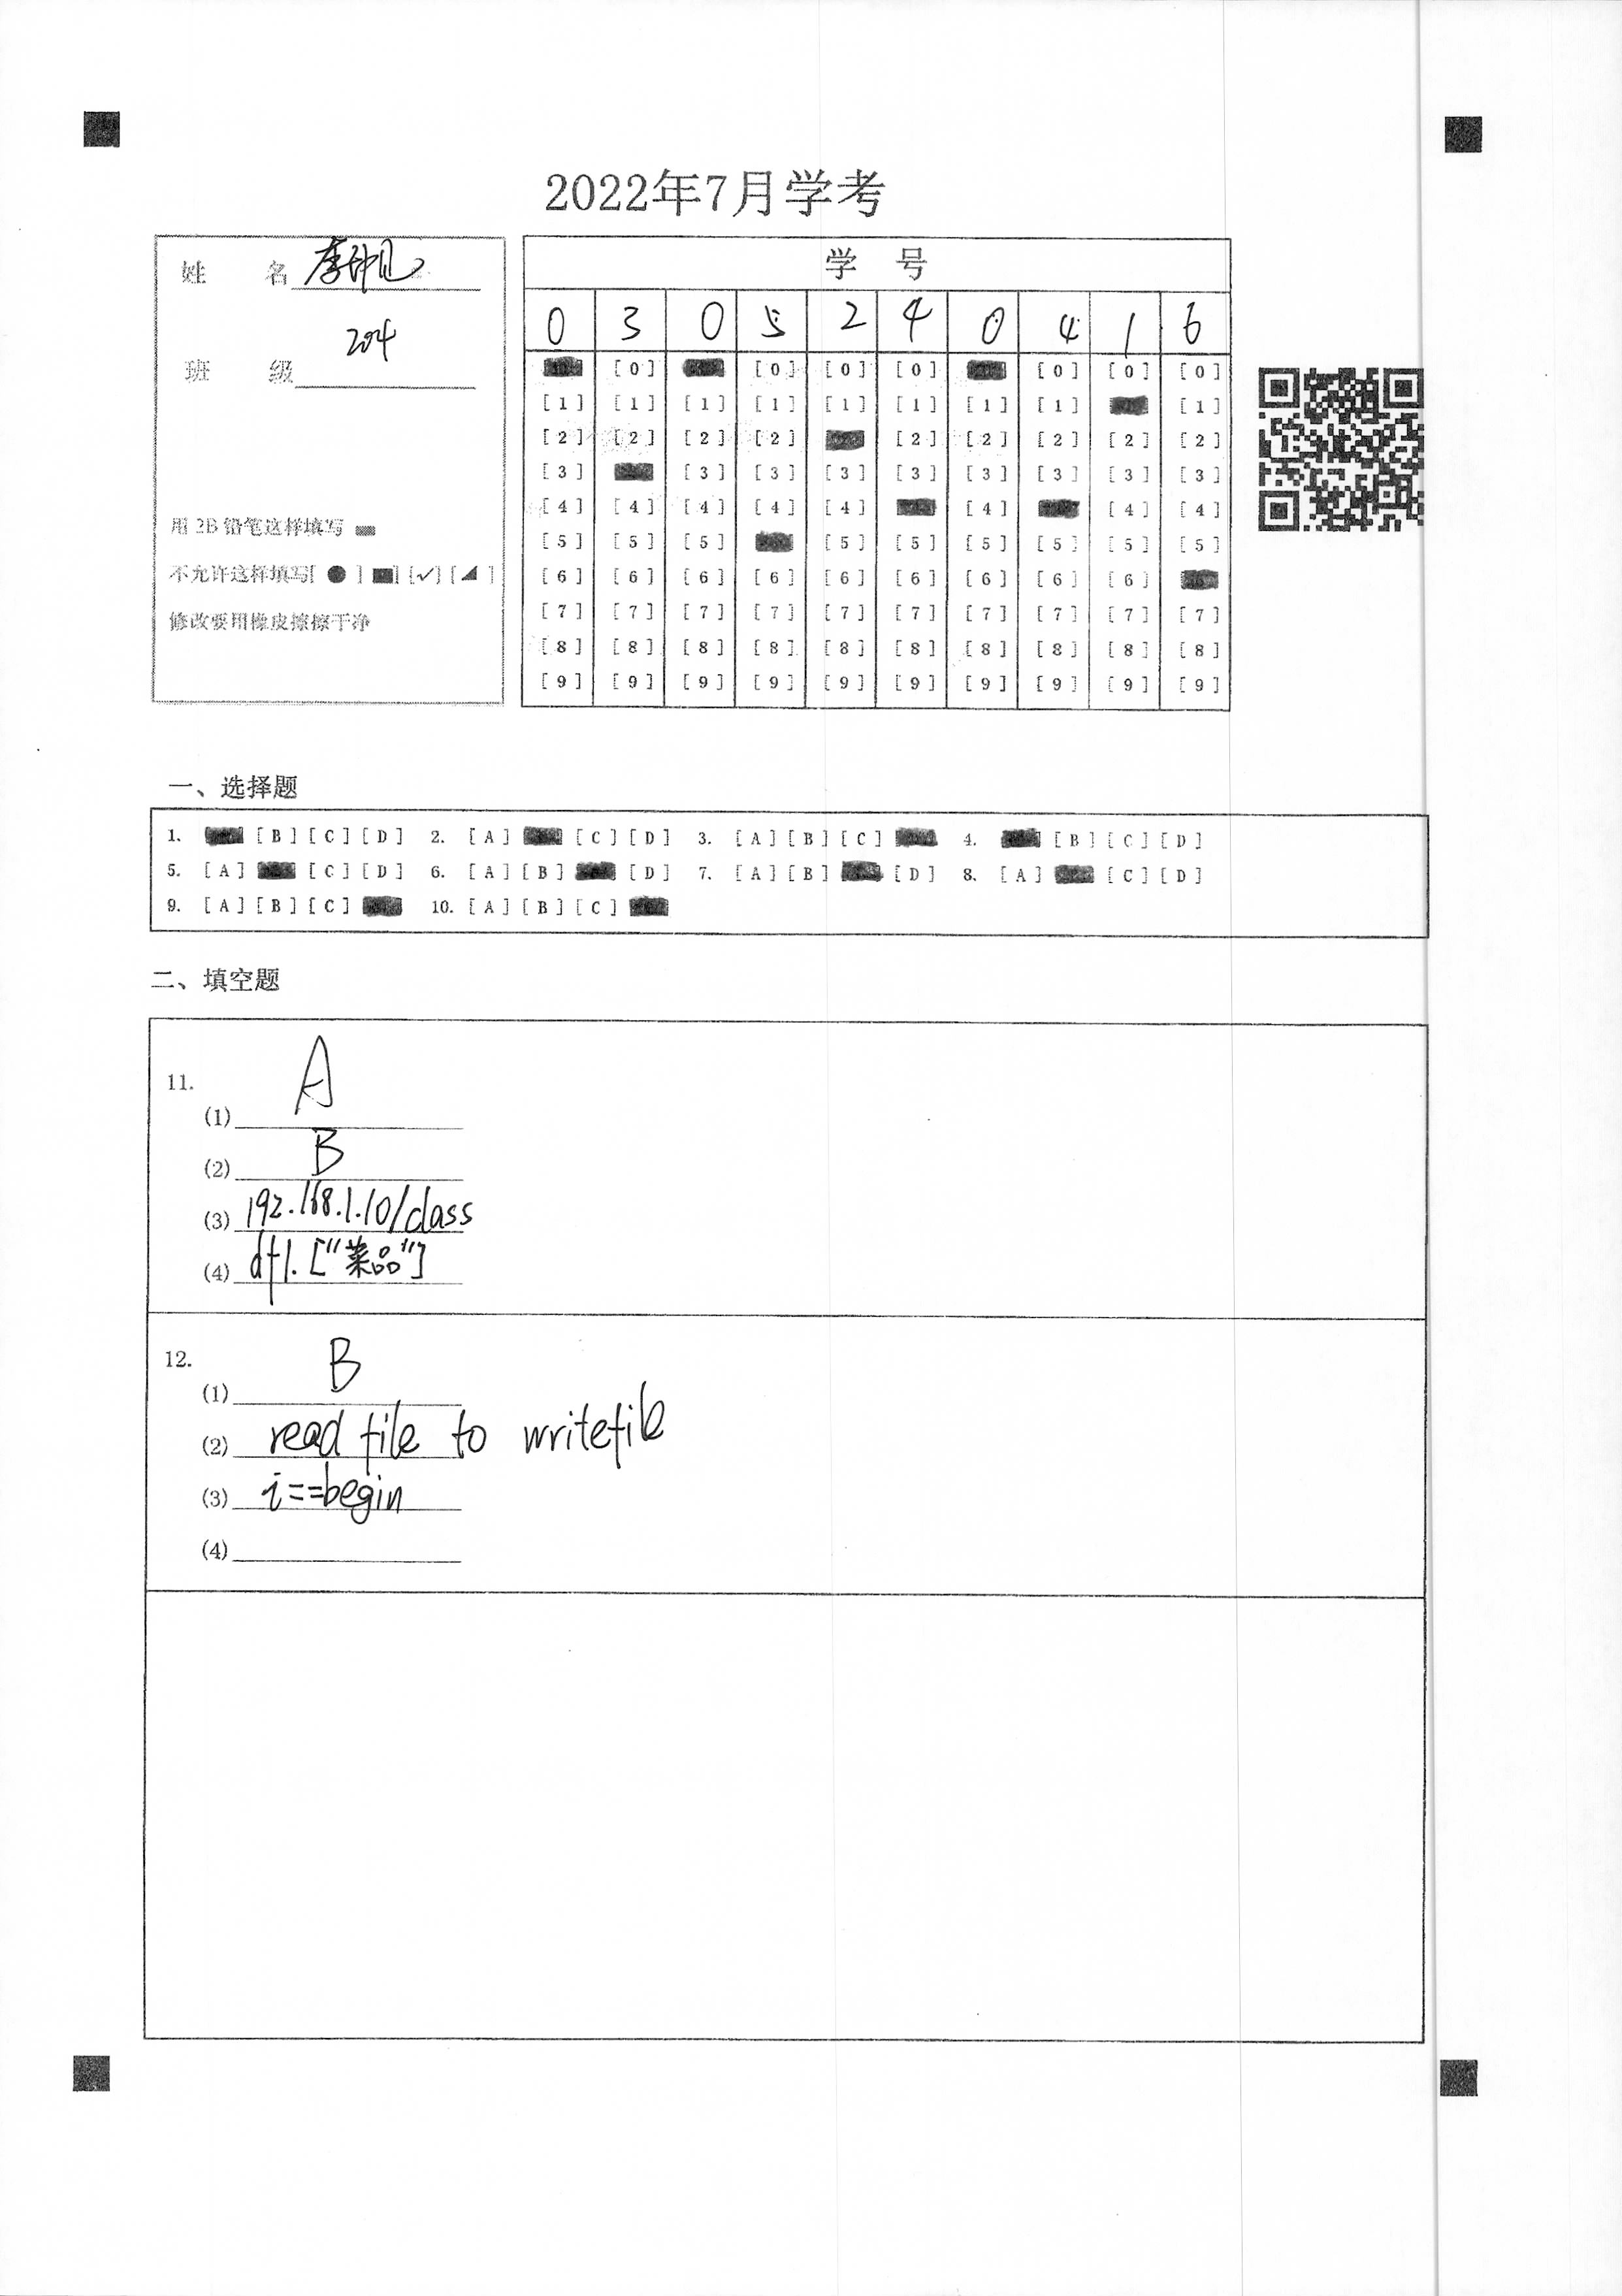 2022年7月学考
姓 名 李
班 级 204
用 2B 铅笔这样填写
不允许这样填写[ ● ] ■] [✓] [ ◢ ]
修改要用橡皮擦擦干净
学 号
0 3 0 5 2 4 0 4 1 6
[0] [0] [0] [0] [0] [0] [0]
[1] [1] [1] [1] [1] [1] [1] [1] [1]
[2] [2] [2] [2] [2] [2] [2] [2] [2]
[3] [3] [3] [3] [3] [3] [3] [3] [3]
[4] [4] [4] [4] [4] [4] [4] [4]
[5] [5] [5] [5] [5] [5] [5] [5] [5]
[6] [6] [6] [6] [6] [6] [6] [6] [6]
[7] [7] [7] [7] [7] [7] [7] [7] [7] [7]
[8] [8] [8] [8] [8] [8] [8] [8] [8] [8]
[9] [9] [9] [9] [9] [9] [9] [9] [9] [9]
一、选择题
1. [B] [C] [D] 2. [A] [C] [D] 3. [A] [B] [C] 4. [B] [C] [D]
5. [A] [C] [D] 6. [A] [B] [D] 7. [A] [B] [D] 8. [A] [C] [D]
9. [A] [B] [C] 10. [A] [B] [C]
二、填空题
11.
(1) A
(2) B
(3) 192.168.1.10/class
(4) df1.["菜品"]
12.
(1) B
(2) read file to writefile
(3) i==begin
(4)